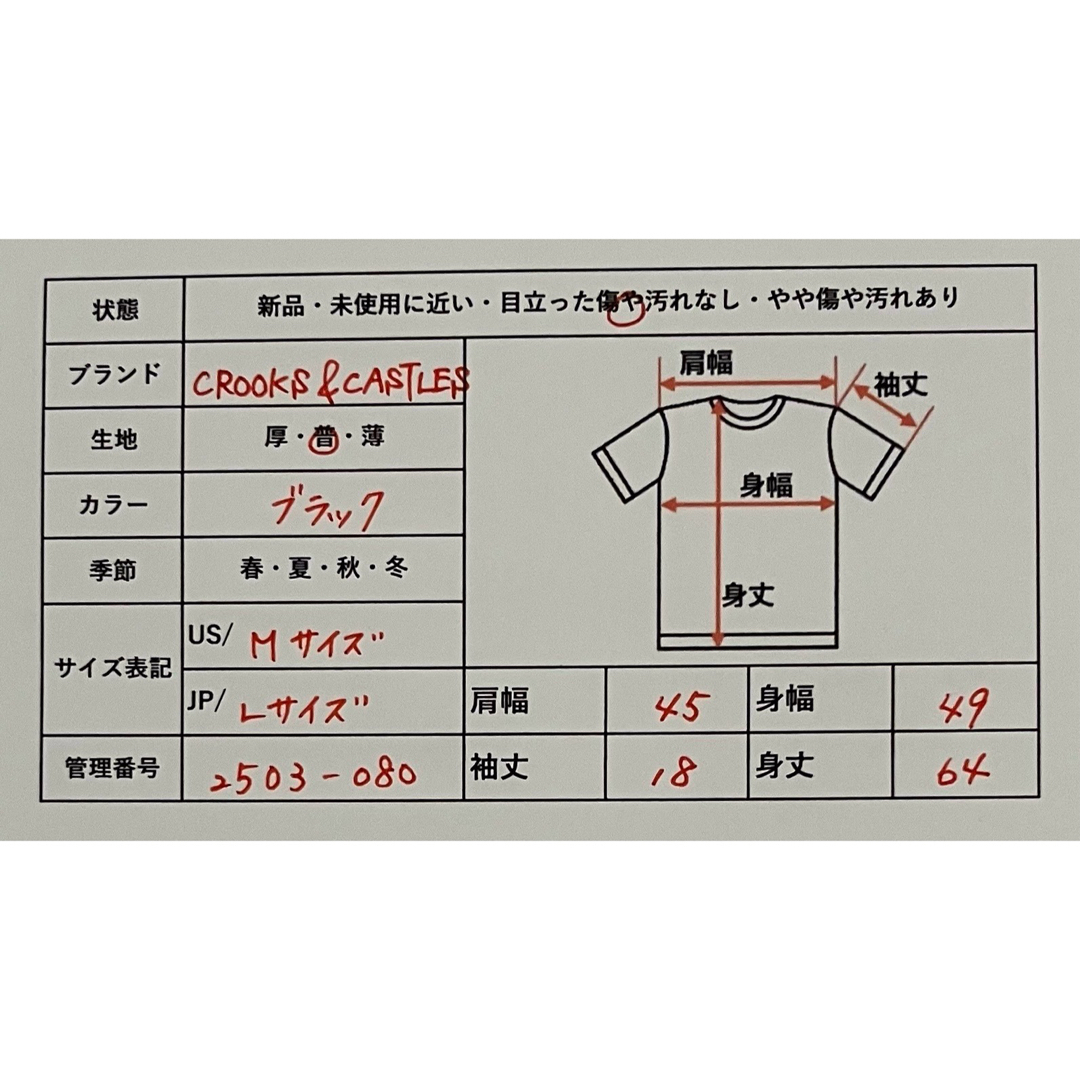 状態 新品・未使用に近い・目立った傷や汚れなし・やや傷や汚れあり
ブランド CROOKS & CASTLES
生地 厚・普・薄
カラー ブラック
季節 春・夏・秋・冬
サイズ表記
US/ Mサイズ
JP/ Lサイズ
管理番号 2503-080
肩幅
袖丈
身幅
身丈
肩幅 45 身幅 49
袖丈 18 身丈 64